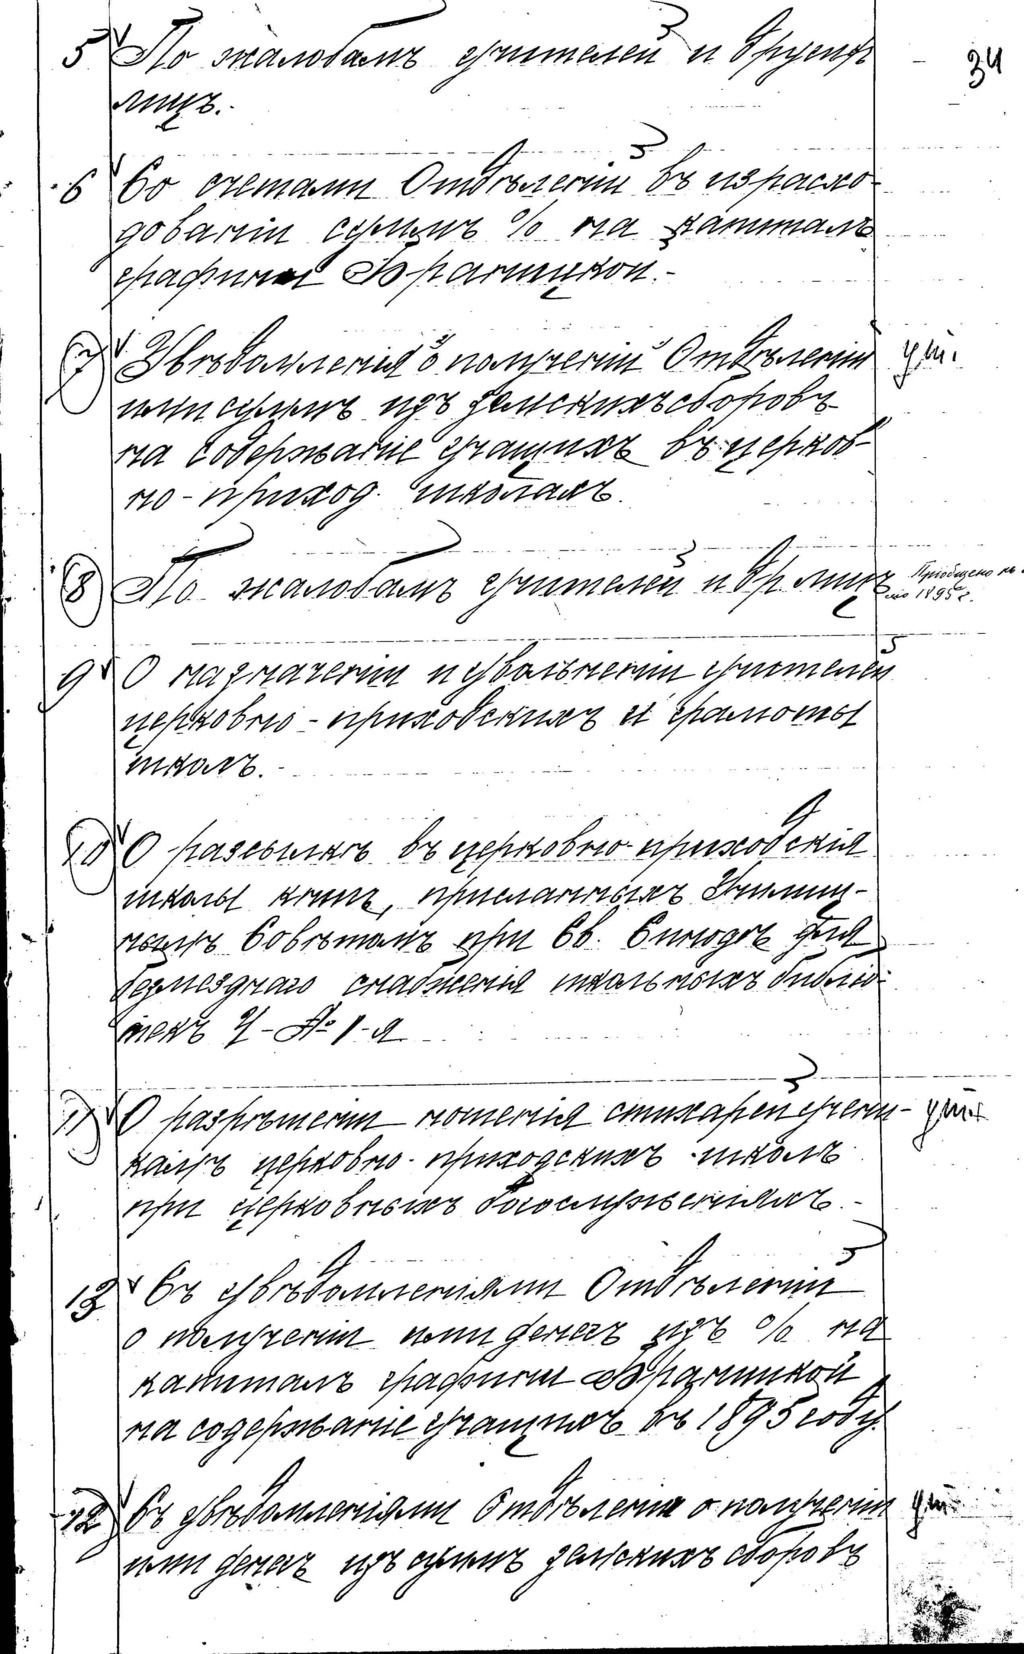 34
5 По жалобамъ учителей и другихъ
лицъ.-
6 Со счетами Отдѣленій въ израсхо-
дованіи суммъ % на капиталъ
графини Браницкой.-
7 Увѣдомленія о полученіи Отдѣленія
ми суммъ изъ земскихъ сборовъ
на содержаніе учащихъ въ церков-
но-приход. школахъ.
8 По жалобамъ учителей и др. лицъ
Пріобщено къ
1895 г.
9 О назначеніи и увольненіи учителей
церковно-приходскихъ и грамоты
школъ.-
10 О разсылкѣ въ церковно-приходскія
школы книгъ, присланныхъ Училищ-
нымъ Совѣтомъ при Св. Синодѣ для
безмезднаго снабженія школьныхъ библіо-
текъ Ч-А: 1-я
11 О разрѣшеніи ношенія стихарей учени-
камъ церковно-приходскихъ школъ
при церковныхъ богослуженіяхъ.-
13 Съ увѣдомленіями Отдѣленій
о полученіи ими денегъ изъ % на
капиталъ графини Браницкой
на содержаніе учащихъ въ 1895 году.
12 Съ увѣдомленіями Отдѣленія о полученіи
ими денегъ изъ суммъ земскихъ сборовъ